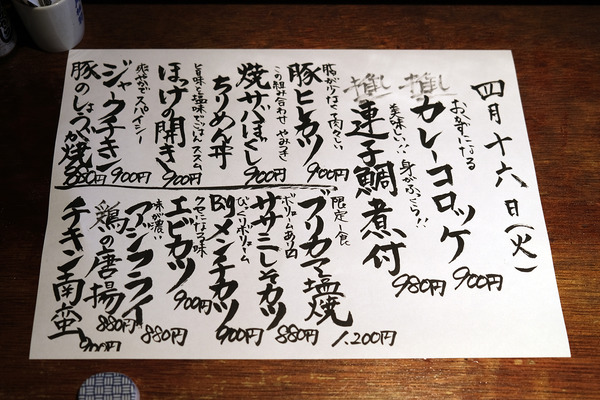 四月十六日(火)
おかずになる
推し カレーコロッケ 900円
美味しい!! 身がふっくら!!
推し 連子鯛煮付 980円
脂が少なく肉々しい
豚ヒレカツ 900円
この組み合わせ やみつき
焼サバほぐし
ちりめん丼 900円
旨味と塩味でごはんススム
ほっけの開き 900円
爽やかでスパイシー
ジャークチキン 900円
豚のしょうが焼 880円
限定一食
ブリカマ塩焼 1,200円
ボリュームあり
ササミしそカツ 880円
びっくりボリューム
Bigメンチカツ 900円
クセになる味
エビカツ 900円
味が濃い
アジフライ 880円
鶏の唐揚 880円
チキン南蛮 900円